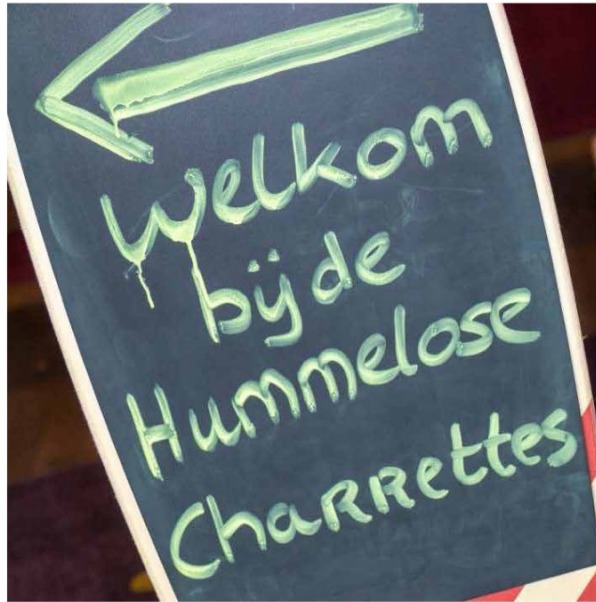 Welkom
bij de
Hummelose
Charrettes